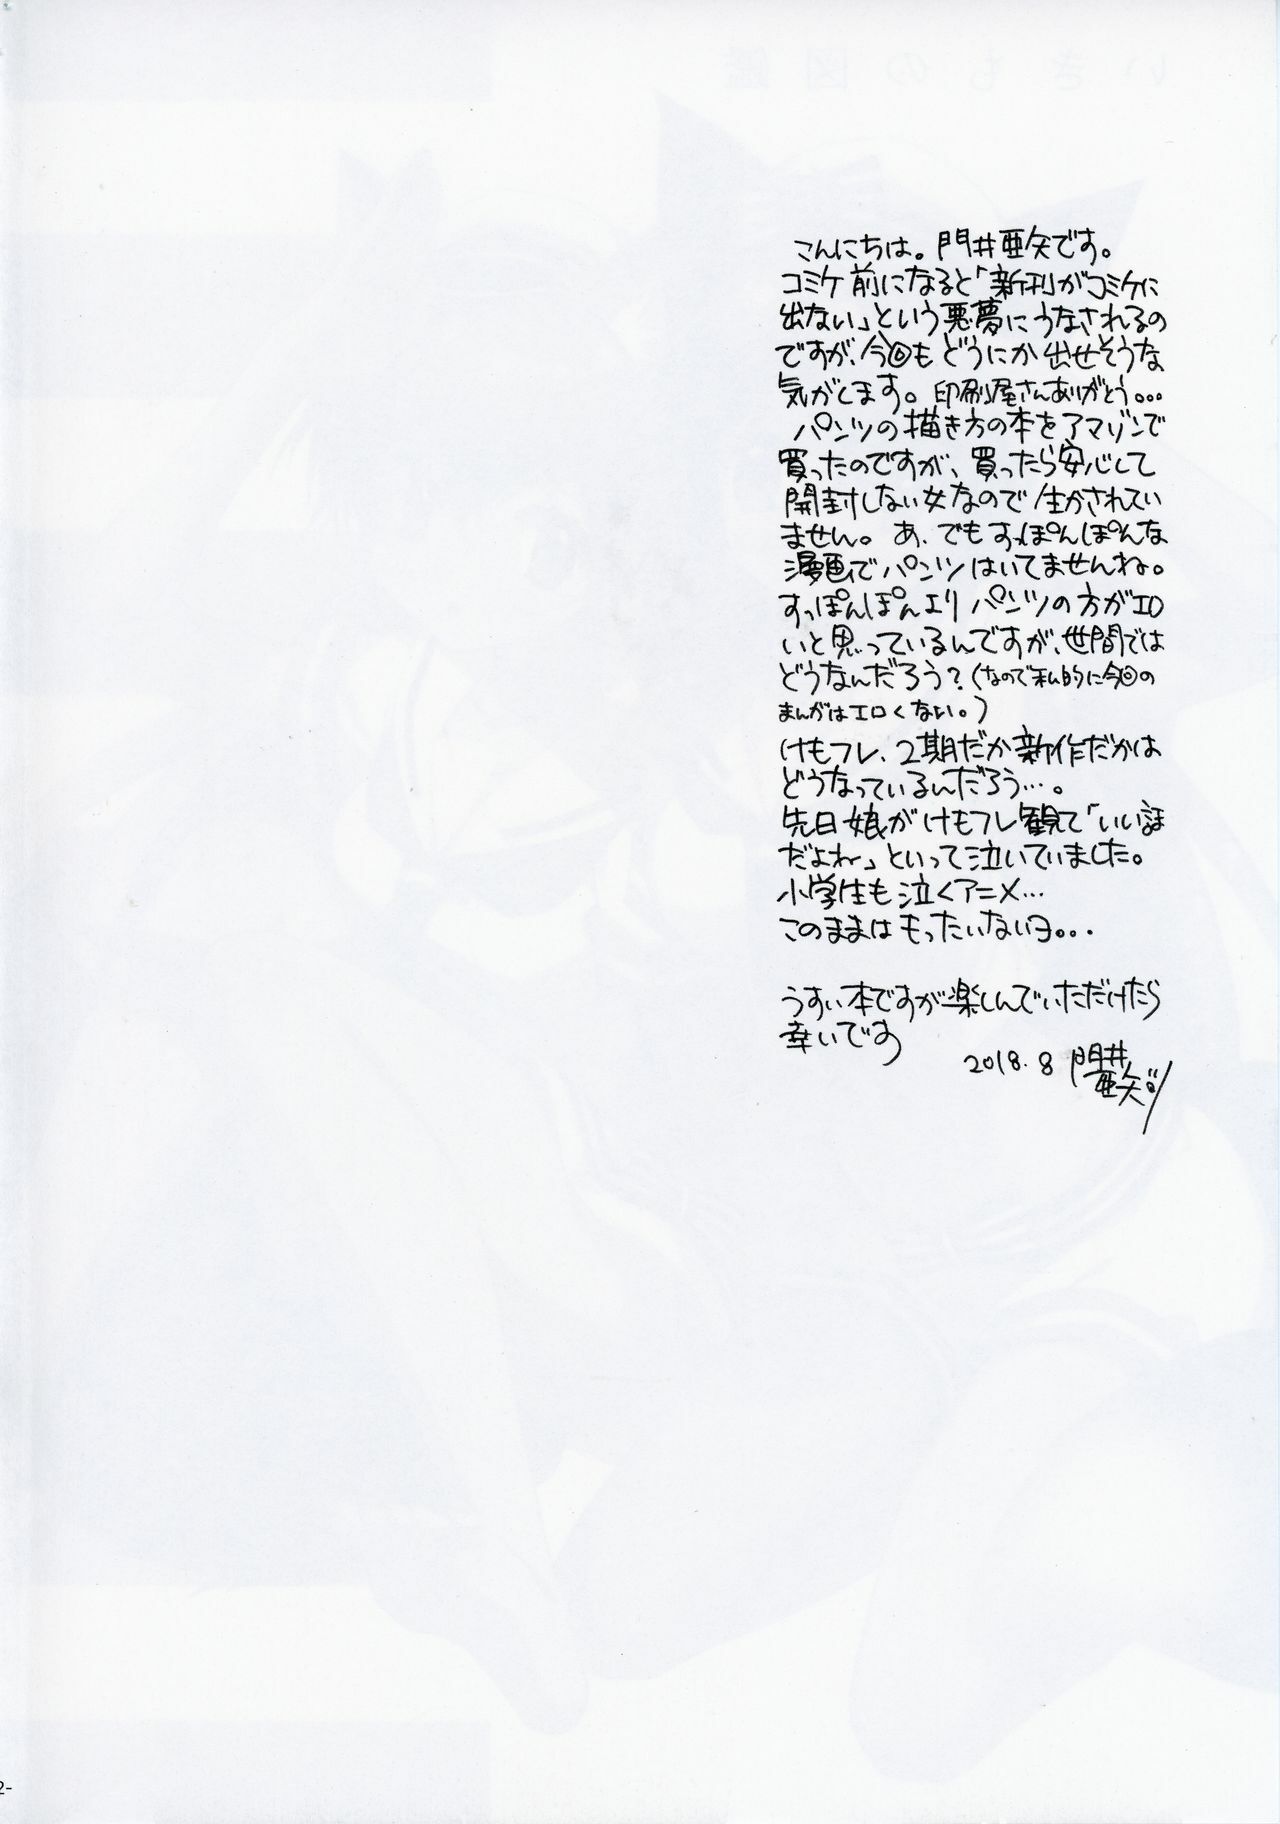 いきもの図鑑
こんにちは。門井亜矢です。
コミケ前になると「新刊がコミケに
出ない」という悪夢にうなされるの
ですが、今回もどうにか出せそうな
気がします。印刷屋さんありがとう...
パンツの描き方の本をアマゾンで
買ったのですが、買ったら安心して
開封しない女なので生かされてい
ません。あ、でもすっぽんぽんな
漫画でパンツはいてませんね。
すっぽんぽんよりパンツの方がエロ
いと思っているんですが、世間では
どうなんだろう？(なので私的に今回の
まんがはエロくない。)
けもフレ、2期だか新作だかは
どうなっているんだろう…。
先日娘がけもフレ観て「いい話
だよね」といって泣いていました。
小学生も泣くアニメ…
このままはもったいないヨ...
うすい本ですが楽しんでいただけたら
幸いです
2018.8 門井亜矢
2-